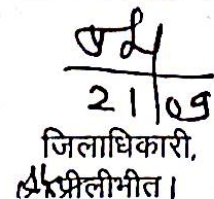 21/09
जिलाधिकारी,
पीलीभीत।